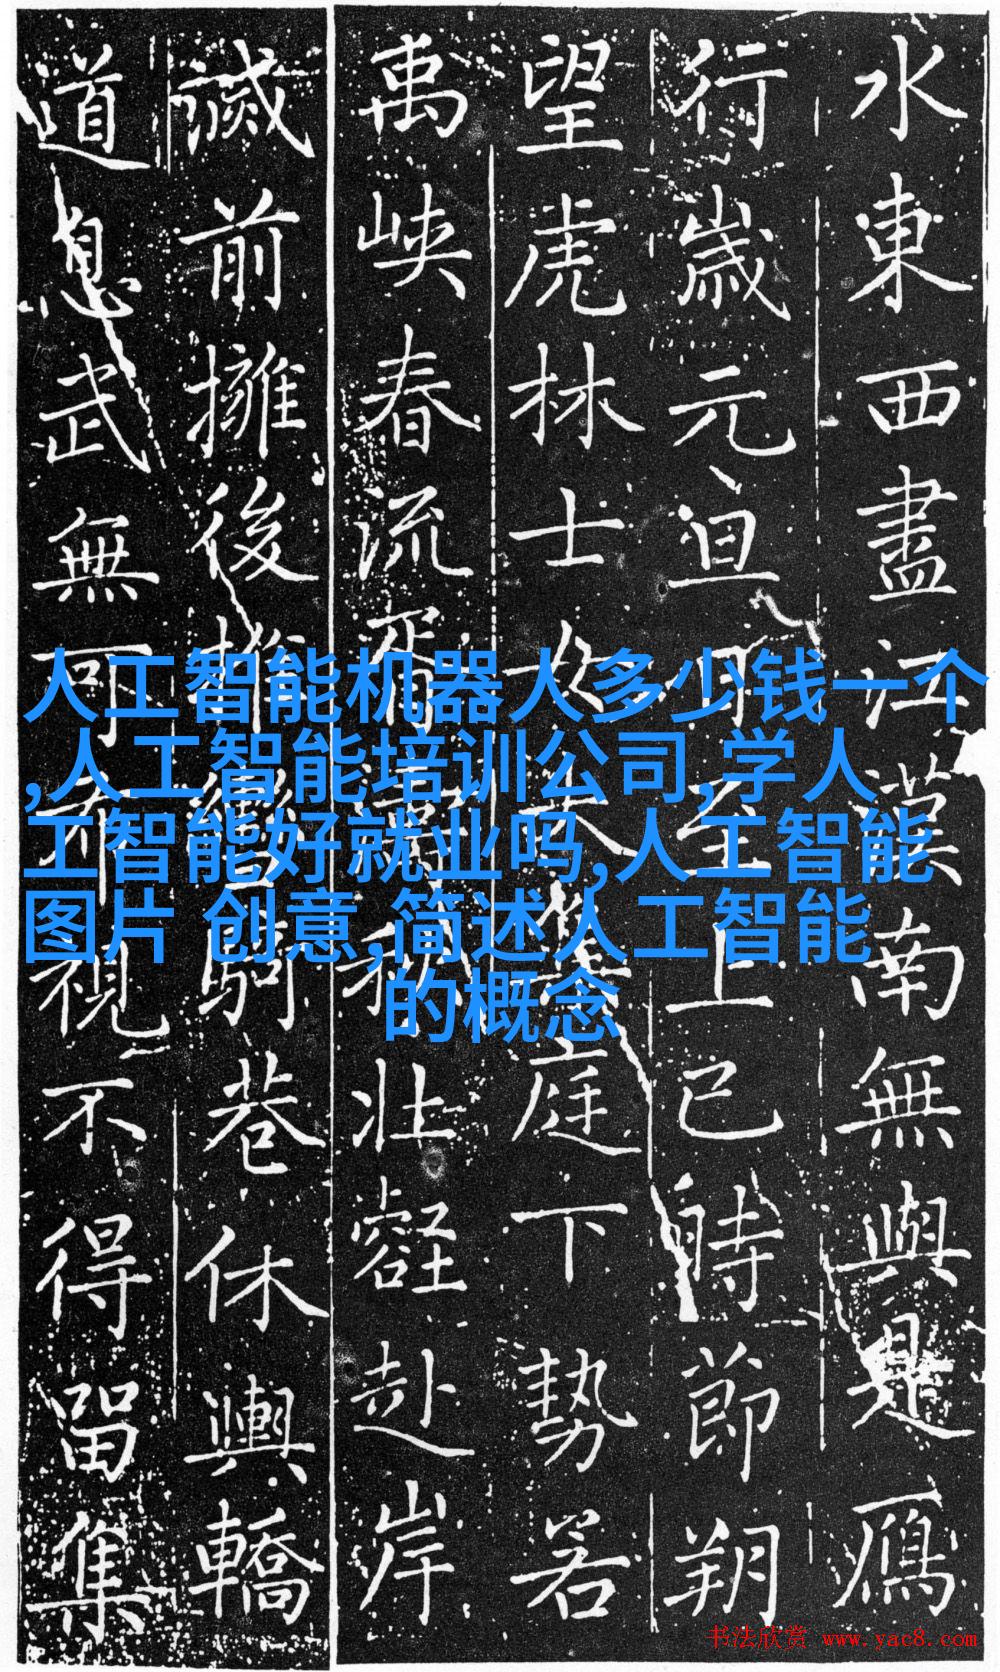 水東西盡江漢南無與是鴈
行歲元旦至上巳時節朔
望虎林士女庭下勢若
禹峽春流胥秋壯壑赴岸
前擁後駒巷休輿轎
道息武無可視不得留集
人工智能机器人多少钱一个
,人工智能培训公司,学人
工智能好就业吗,人工智能
图片 创意,简述人工智能
的概念
书法欣赏 www.yac8.com